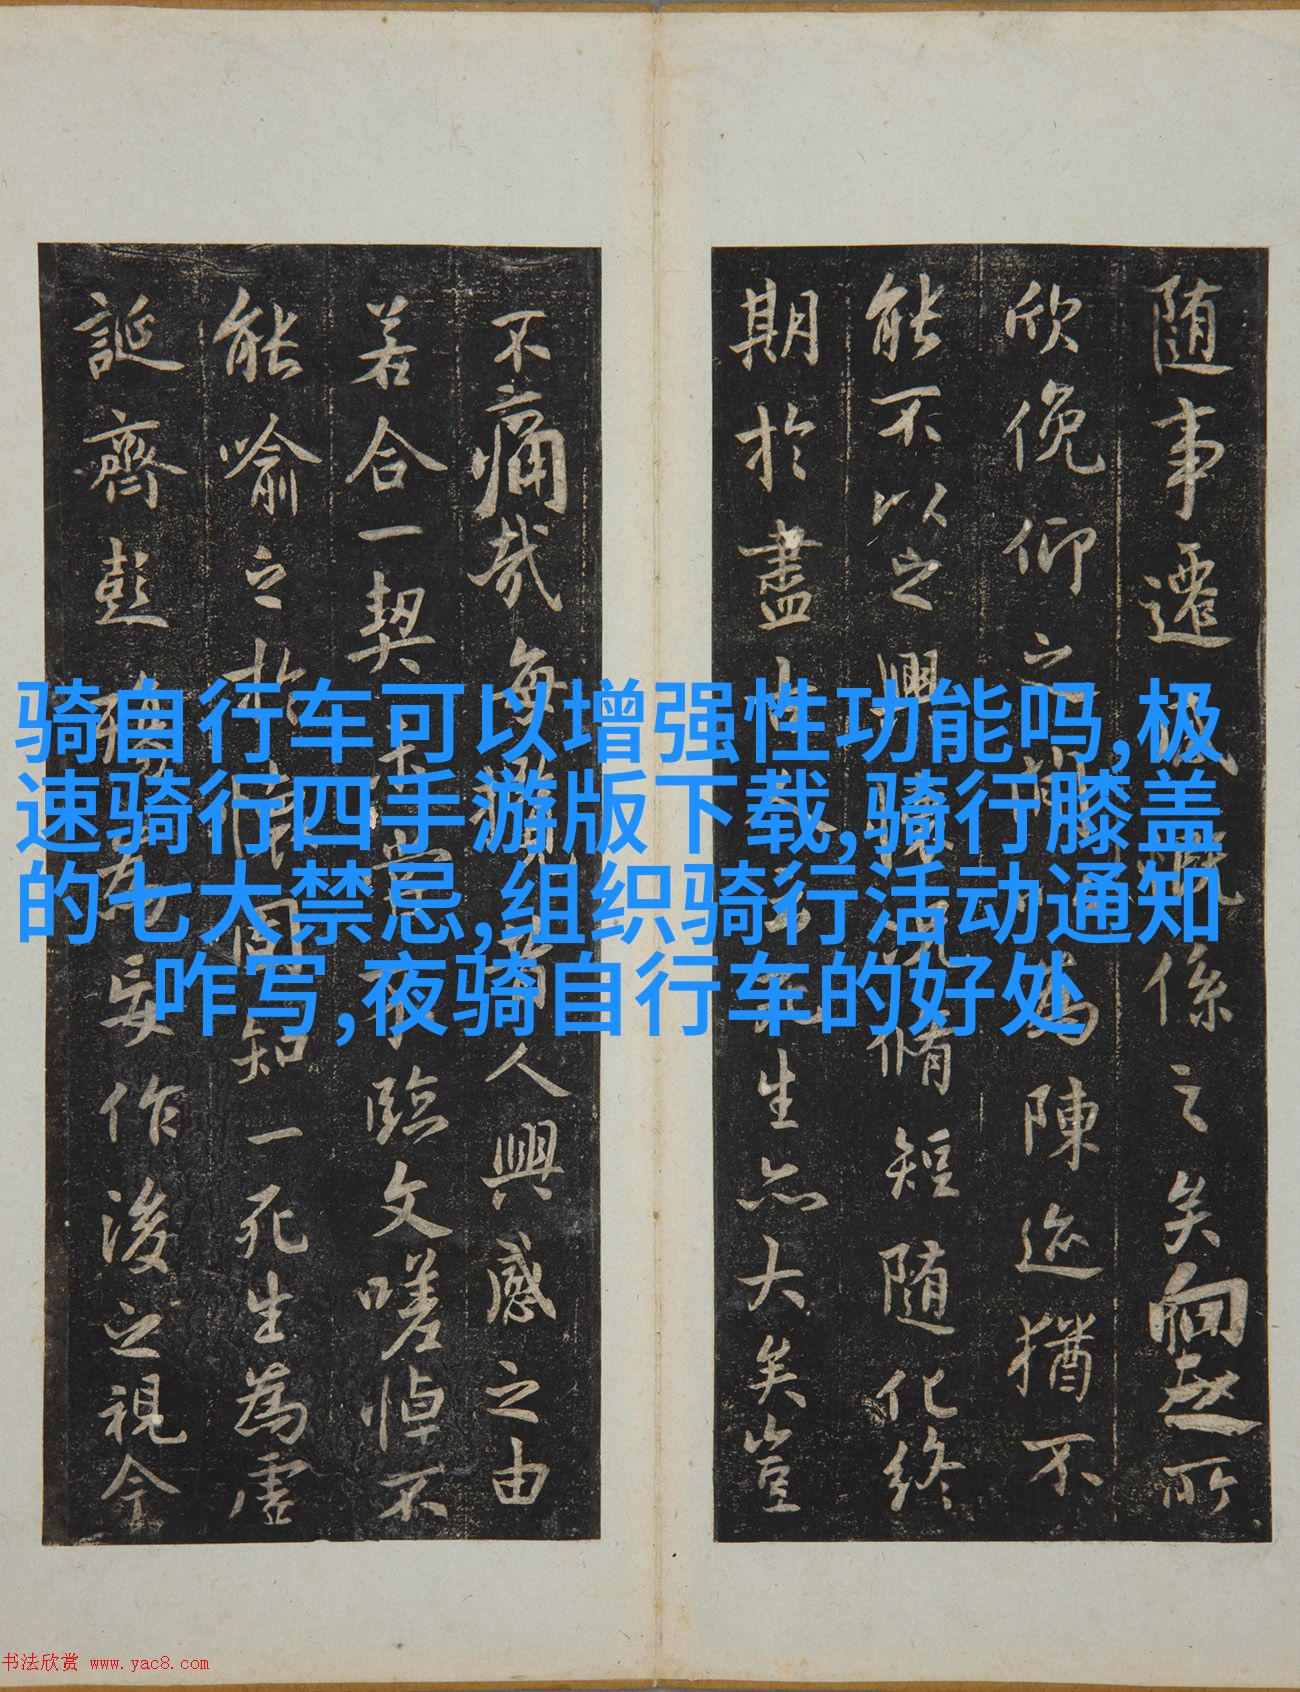 随事遷感慨係之矣向之所
欣俛仰之間以為陳迹猶不
能不以之興懷況脩短随化終
期於盡古人云死生亦大矣豈
不痛哉每攬昔人興感之由
若合一契未嘗不臨文嗟悼不
能喻之於懷固知一死生為虛
誕齊彭殤為妄作後之視今
骑自行车可以增强性功能吗,极
速骑行四手游版下载,骑行膝盖
的七大禁忌,组织骑行活动通知
咋写,夜骑自行车的好处
书法欣赏 www.yac8.com